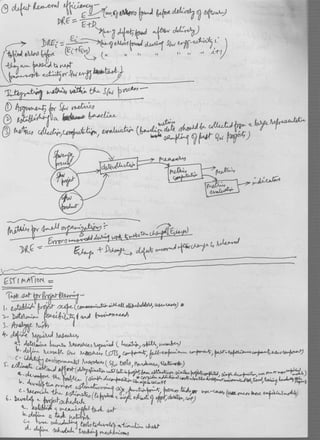 ④ defect Removal efficiency -
DRE = E / E+D (no. of errors found before delivery of software)
no. of defects found after delivery
DREi = Ei / (Ei + Ei+1) no. of errors found during SW engg activity i
" " " " " i+1
find errors before
they are passed to next
framework activity or SW engg task
Integrating metrics within the SW process -
① Arguments for SW metrics
② Establishing a baseline
③ metric collection, computation, evaluation (baseline data should be collected from a large representative
sampling of past SW projects)
SW engg process
SW project
SW product
data collection
measures
metric computation
metrics
metrics evaluation
indicators
Metrics for small organizations :-
DRE = Errors uncovered during work to make change (Echange)
Echange + Dchange → defects uncovered after change is delivered
ESTIMATION =
Task set for Project Planning -
1. establish project scope (communication with all stakeholders, use cases)
2. Determine feasibility and business needs
3. Analyze risks
4. define required resources
a. determine human resources required (location, skills, number)
b. define reusable SW resources (COTS, components, full-experience components, part-experience components, new components)
c. identify environmental resources (SW tools, hardware, Network)
5. estimate cost and effort
a. decompose the problem
b. develop two or more estimates using size, function points, process tasks or use cases
c. reconcile the estimates
6. Develop a project schedule
a. establish a meaningful task set
b. define a task network
c. use scheduling tools to develop a timeline chart
d. define schedule tracking mechanisms